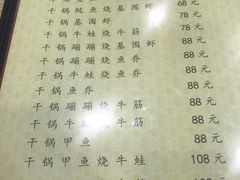 68元
干锅鱿鱼烧基围虾 78元
干锅基围虾 78元
干锅牛蛙烧牛筋 88元
干锅蹦蹦烧基围虾 88元
干锅蹦蹦烧鱼乔 88元
干锅牛蛙烧鱼乔 88元
干锅鱼乔 88元
干锅蹦蹦烧牛筋 88元
干锅牛筋 88元
干锅甲鱼 88元
干锅甲鱼烧牛蛙 108元
元